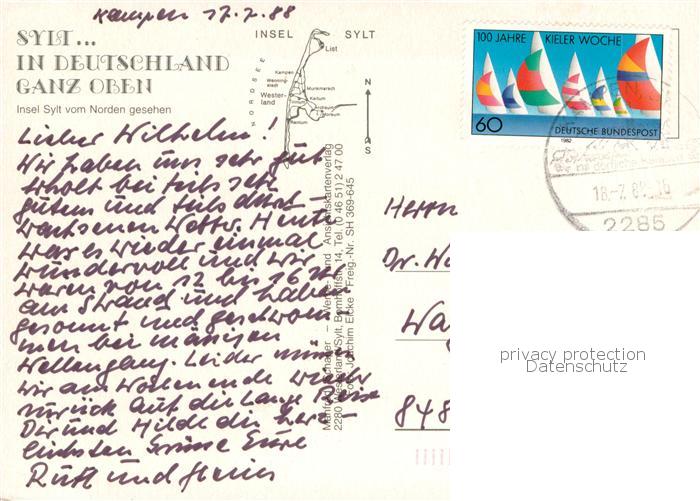 Kampen 17.7.88
SYLT...
IN DEUTSCHLAND
GANZ OBEN
Insel Sylt vom Norden gesehen
INSEL SYLT
NORDSEE
List
Kampen
Wenningstedt
Westerland
Munkmarsch
Keitum
Archsum
Morsum
Rantum
N
S
Lieber Wilhelm!
Wir haben uns sehr gut
erholt bei teils sehr
gutem und teils durch-
wachsenen Wetter. Heute
war es wieder einmal
wundervoll und wir
waren von 12 bis 16 Uhr
am Strand und haben
gesonnt und geschwom-
men bei mässigen
Wellengang. Leider müssen
wir am Wochenende wieder
zurück auf die lange Reise
Dir und Hilde die herz-
lichsten Grüsse Eure
Ruth und Heinz
Werbe- und Ansichtskartenverlag
2280 Westerland/Sylt, Bomhoffstr. 14, Tel. (0 46 51) 2 47 00
Foto: Joachim Eicke - Freig.-Nr. SH 369-645
100 JAHRE KIELER WOCHE
60
1982
DEUTSCHE BUNDESPOST
18.-7.88.-16
2285
Herrn
Dr. W
Wa
848
privacy protection
Datenschutz